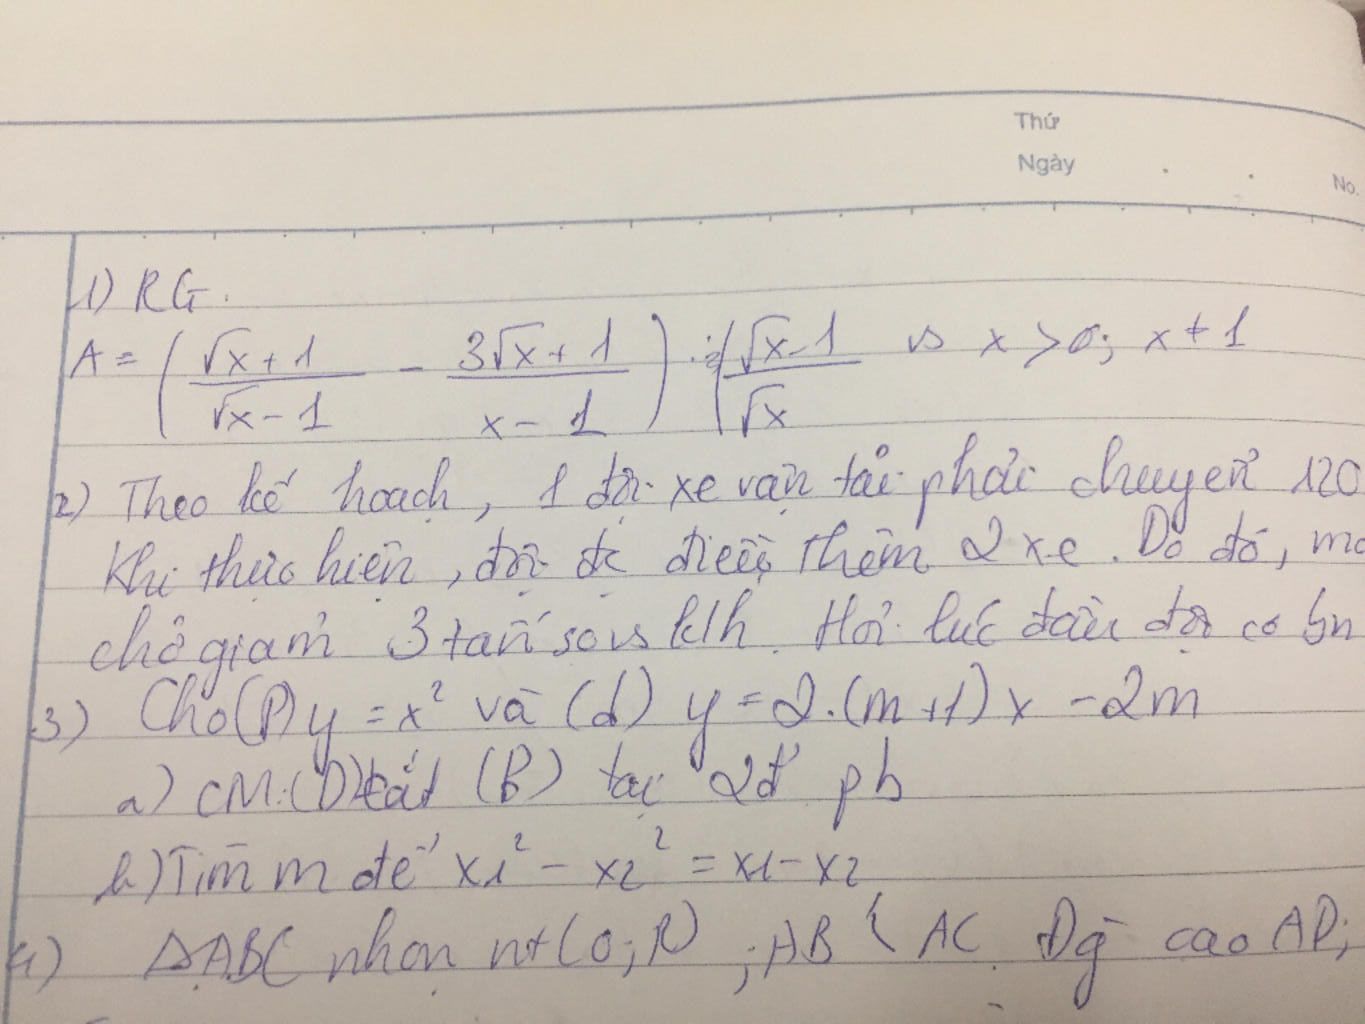 Thứ
Ngày
No.
1) RG.
A = ( (√x + 1)/(√x - 1) - (3√x + 1)/(x - 1) ) : (√x - 1)/√x vs x > 0; x ≠ 1
2) Theo kế hoạch, 1 đội xe vận tải phải chuyển 120
Khi thực hiện, đội đc điều thêm 2 xe. Do đó, mỗ
chở giảm 3 tấn so vs k/h. Hỏi lúc đầu đội có bn
3) Cho (P) y = x² và (d) y = 2.(m+1)x - 2m
a) CM: (D) cắt (P) tại 2đ pb
b) Tìm m để x1² - x2² = x1 - x2
4) ΔABC nhọn nt (O; R) ; AB < AC. Đg cao AD;